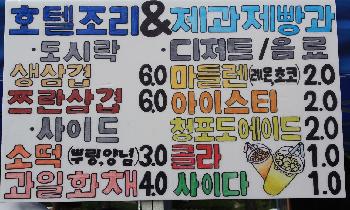 호텔조리&제과제빵과
·도시락
생삼겹 6.0
쯔란삼겹 6.0
·사이드
소떡(뿌링,양념) 3.0
과일화채 4.0
·디저트/음료
마들렌(레몬,초코) 2.0
아이스티 2.0
청포도에이드 2.0
콜라 1.0
사이다 1.0